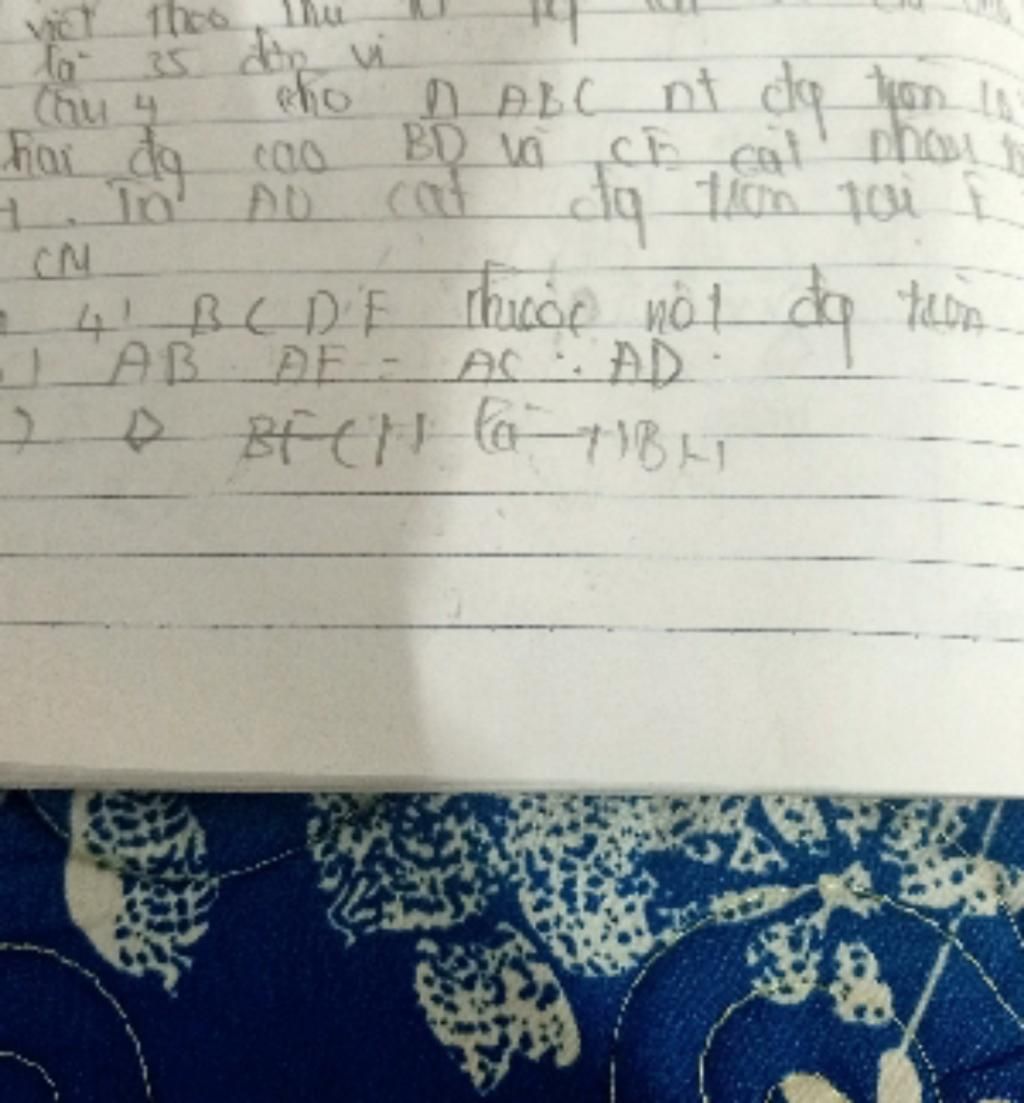 viết theo thu
là 35 đơn vi
Câu 4 cho ABC nt đg tròn
hai đg cao BD và CE cắt nhau
H. Tia AO cắt đg tròn tại F
CM
4' B C D E thuộc một đg tròn
AB AE = AC . AD
BFCH là HBH